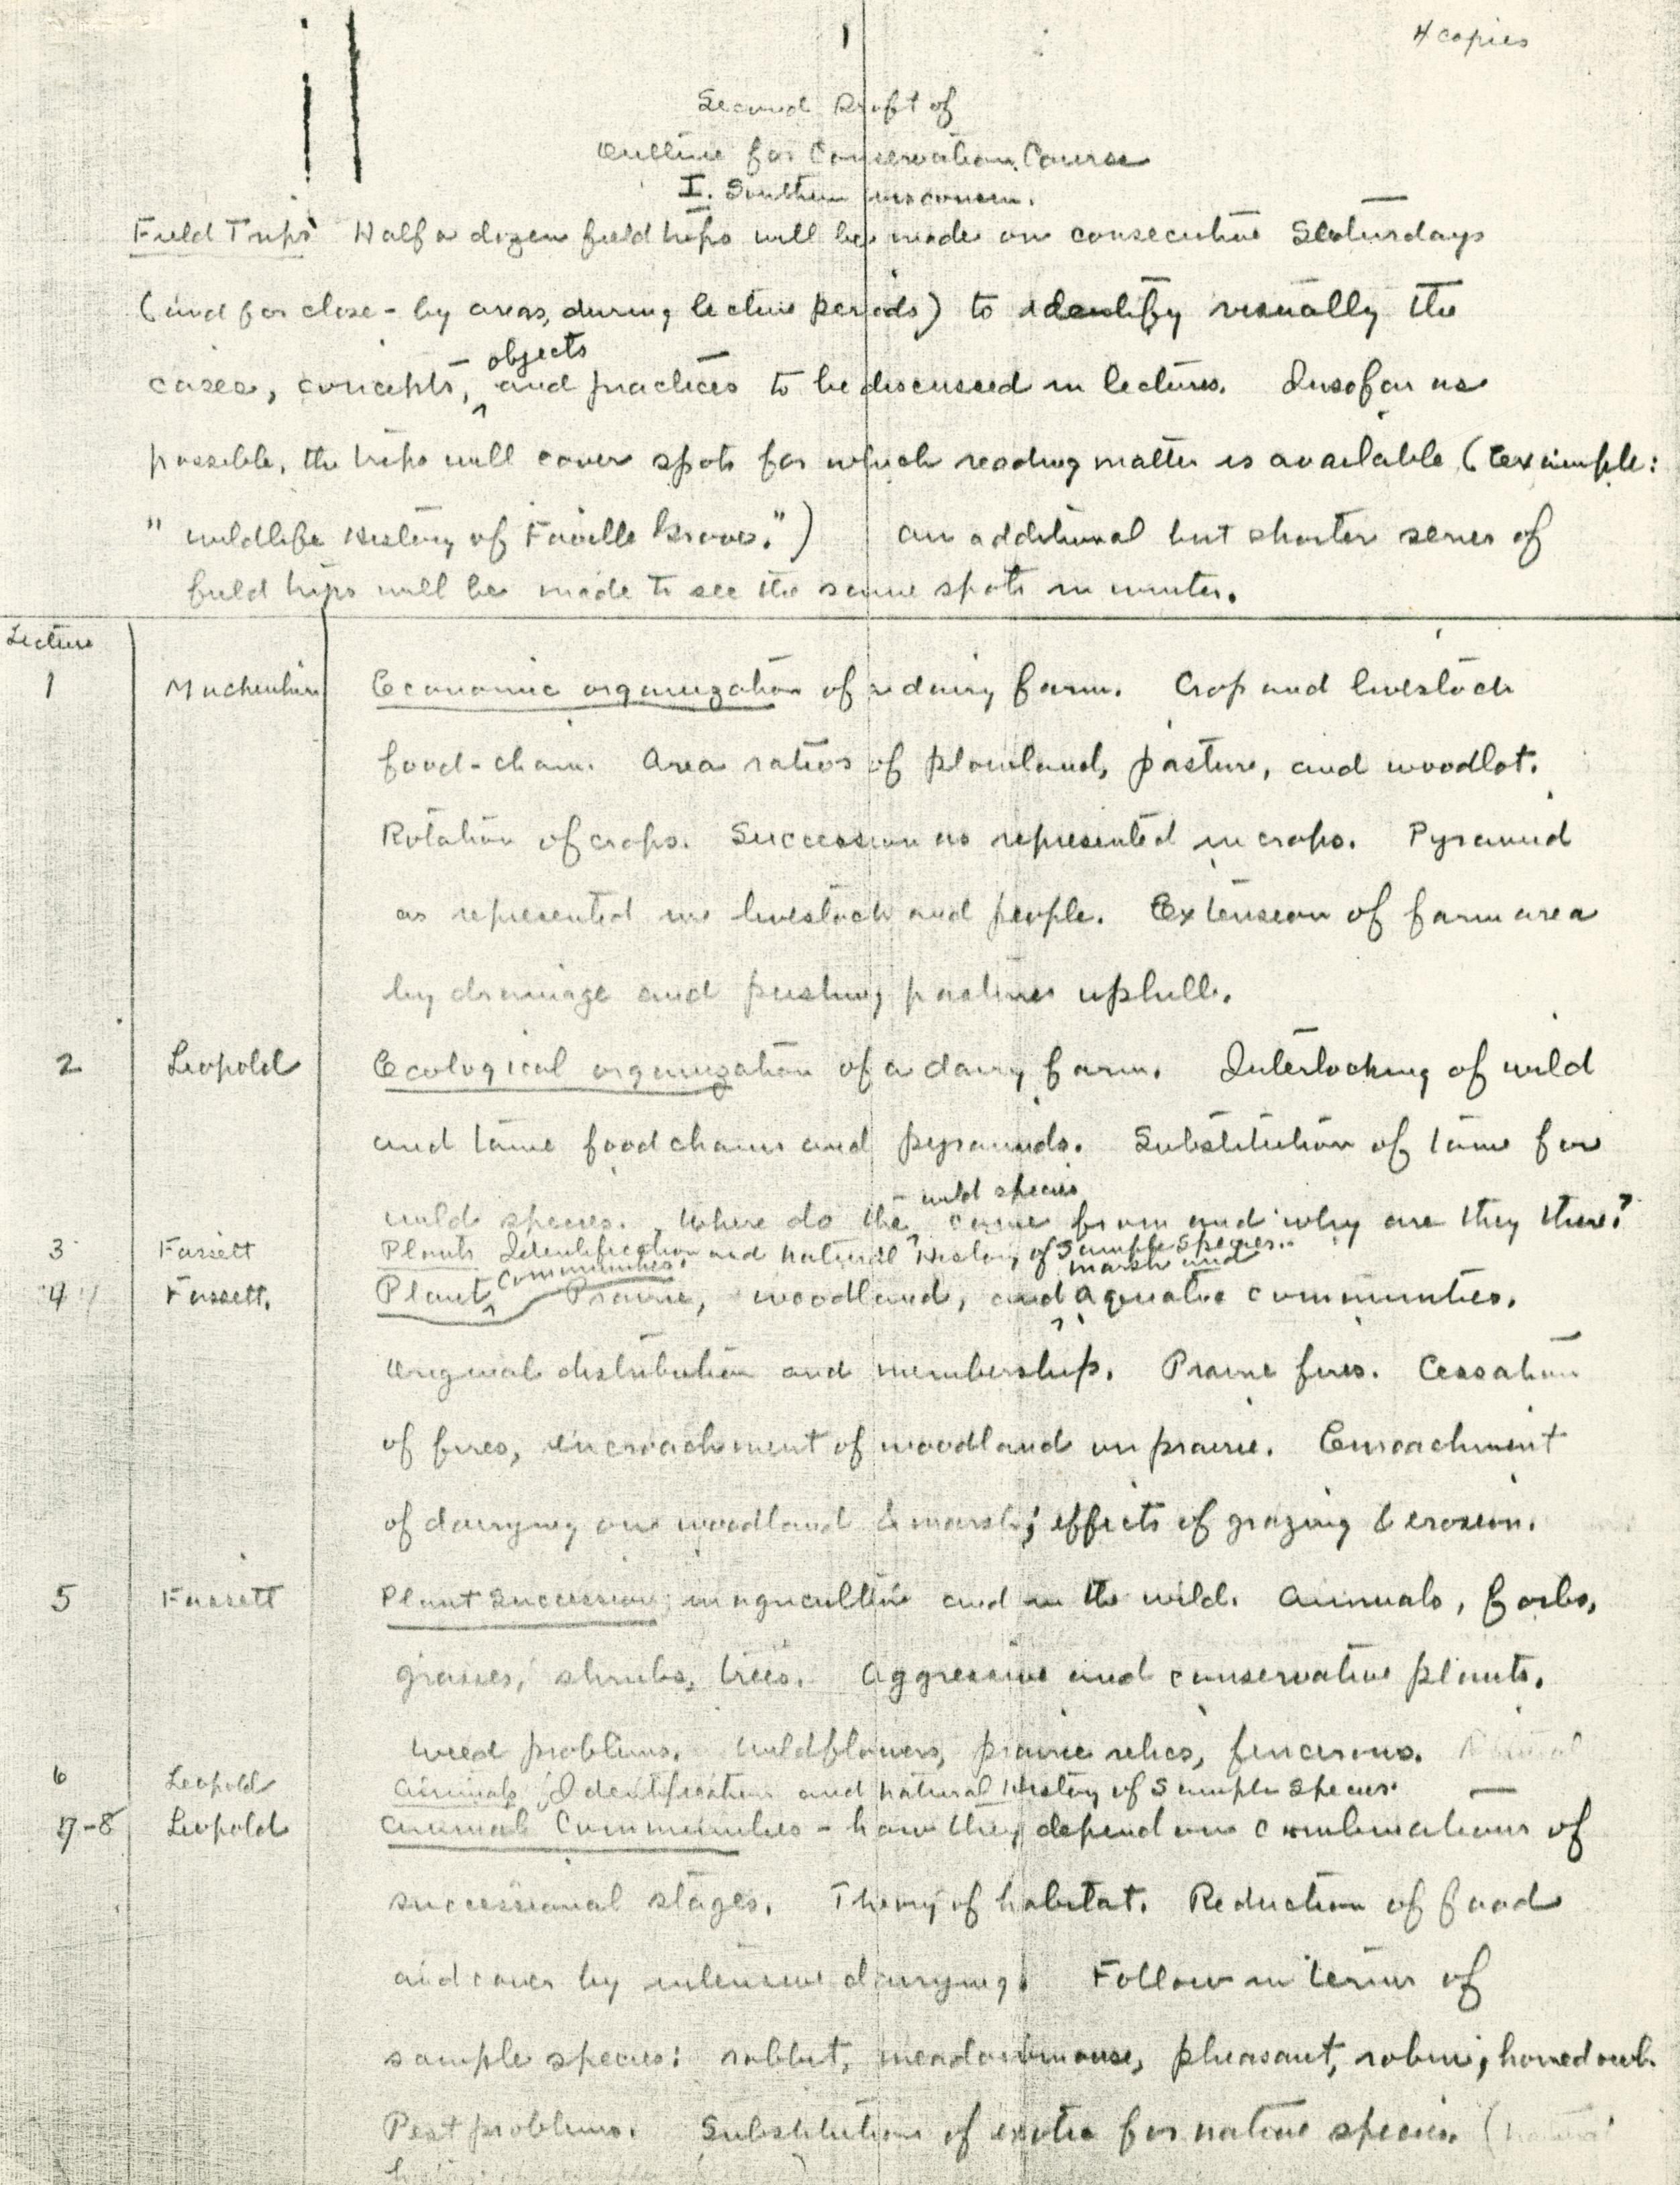 1
4 copies
Second Draft of
Outline for Conservation Course
I. Southern Wisconsin.
Field Trips Half a dozen field trips will be made on consecutive Saturdays
(and for close-by areas, during lecture periods) to identify visually the
objects
cases, concepts, and practices to be discussed in lectures. Insofar as
possible, the trips will cover spots for which reading matter is available (Example:
"Wildlife History of Faville Grove.") An additional but shorter series of
field trips will be made to see the same spots in winter.
Lecture
1 Economic organization of a dairy farm. Crop and livestock
food-chain. Area ratios of plowland, pasture, and woodlot.
Rotation of crops. Succession as represented in crops. Pyramid
as represented in livestock and people. Extension of farm area
by drainage and pushing pastures uphill.
2 Leopold Ecological organization of a dairy farm. Interlocking of wild
and tame food chains and pyramids. Substitution of tame for
wild species
wild species. Where do the come from and why are they there?
3 Fassett Plants Identification and natural History of Sample Species.
communities. marsh and
4 Fassett. Plant Prairie, woodland, and aquatic communities.
Original distribution and membership. Prairie fires. Cessation
of fires, encroachment of woodland on prairie. Encroachment
of dairying on woodland & marsh; effects of grazing & erosion.
5 Fassett Plant Succession; in agriculture and in the wild. Annuals, forbs,
grasses, shrubs, trees. Aggressive and conservative plants.
Weed problems. Wildflowers, prairie relics, fencerows.
6 Leopold Animals, Identification and natural History of Sample Species.
7-8 Leopold Animal Communities - how they depend on combinations of
successional stages. Theory of habitat. Reduction of food
and cover by intensive dairying. Follow in terms of
sample species: rabbit, meadowmouse, pheasant, robin, horned owl.
Pest problems. Substitution of exotic for native species. (natural